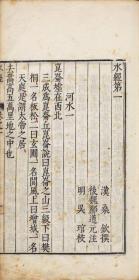 水經第一
漢 桑欽 撰
後魏酈道元注
明 吳琯校
河水一
崑崙墟在西北
三成爲崑崙丘崑崙說曰崑崙之山三級下曰樊
桐一名板松二曰玄圃一名閬風上曰增城一名
天庭是謂太帝之居
去嵩高五萬里地之中也